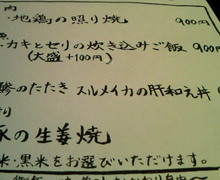 肉
地鶏の照り焼 900円
カキとセリの炊き込みご飯 900円
(大盛+100円)
のたたき スルメイカの肝和え丼
り
の生姜焼
米・黒米をお選びいただけます。